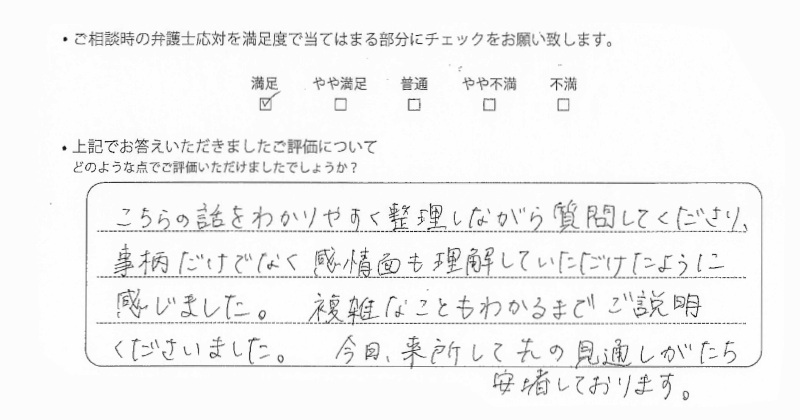 ・ご相談時の弁護士応対を満足度で当てはまる部分にチェックをお願い致します。
満足 やや満足 普通 やや不満 不満
☑ ☐ ☐ ☐ ☐
・上記でお答えいただきましたご評価について
どのような点でご評価いただけましたでしょうか?
こちらの話をわかりやすく整理しながら質問してくださり、
事柄だけでなく感情面も理解していただけたように
感じました。 複雑なこともわかるまでご説明
くださいました。 今日、来所して先の見通しがたち
安堵しております。